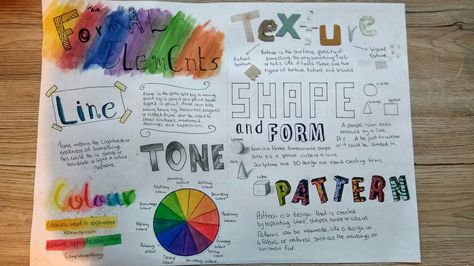 The
Formal
Elements
Texture
Texture is the surface quality of
something, the way something feels
or looks like it feels. There are two
types of texture: Actual and Visual.
Actual
texture
Visual
texture
Line
A line is the path left by a moving
point eg. a pencil or a paint brush
dipped in paint. A line can take
many forms eg. horizontal, diagonal
or curved. A line can be used to
show contours, movements,
feelings and expressions.
SHAPE
and FORM
A shape is an area
enclosed by a line.
It could be just an outline
or it could be shaded in.
Form is a three dimensional shape
such as a sphere, cube or a cone.
Sculpture and 3D design are about creating forms.
sphere
cone
cube
TONE
Tone means the lightness or
darkness of something.
This could be a shade or
how dark or light a colour
appears.
Colour
Colours next to each other
Harmonious
Colours opposite each other
Complementary
Primary
colour
Secondary
colour
PATTERN
Pattern is a design that is created
by repeating lines, shapes, tones or colours.
Patterns can be manmade, like a design on
a fabric or natural, such as the markings on
animal fur.